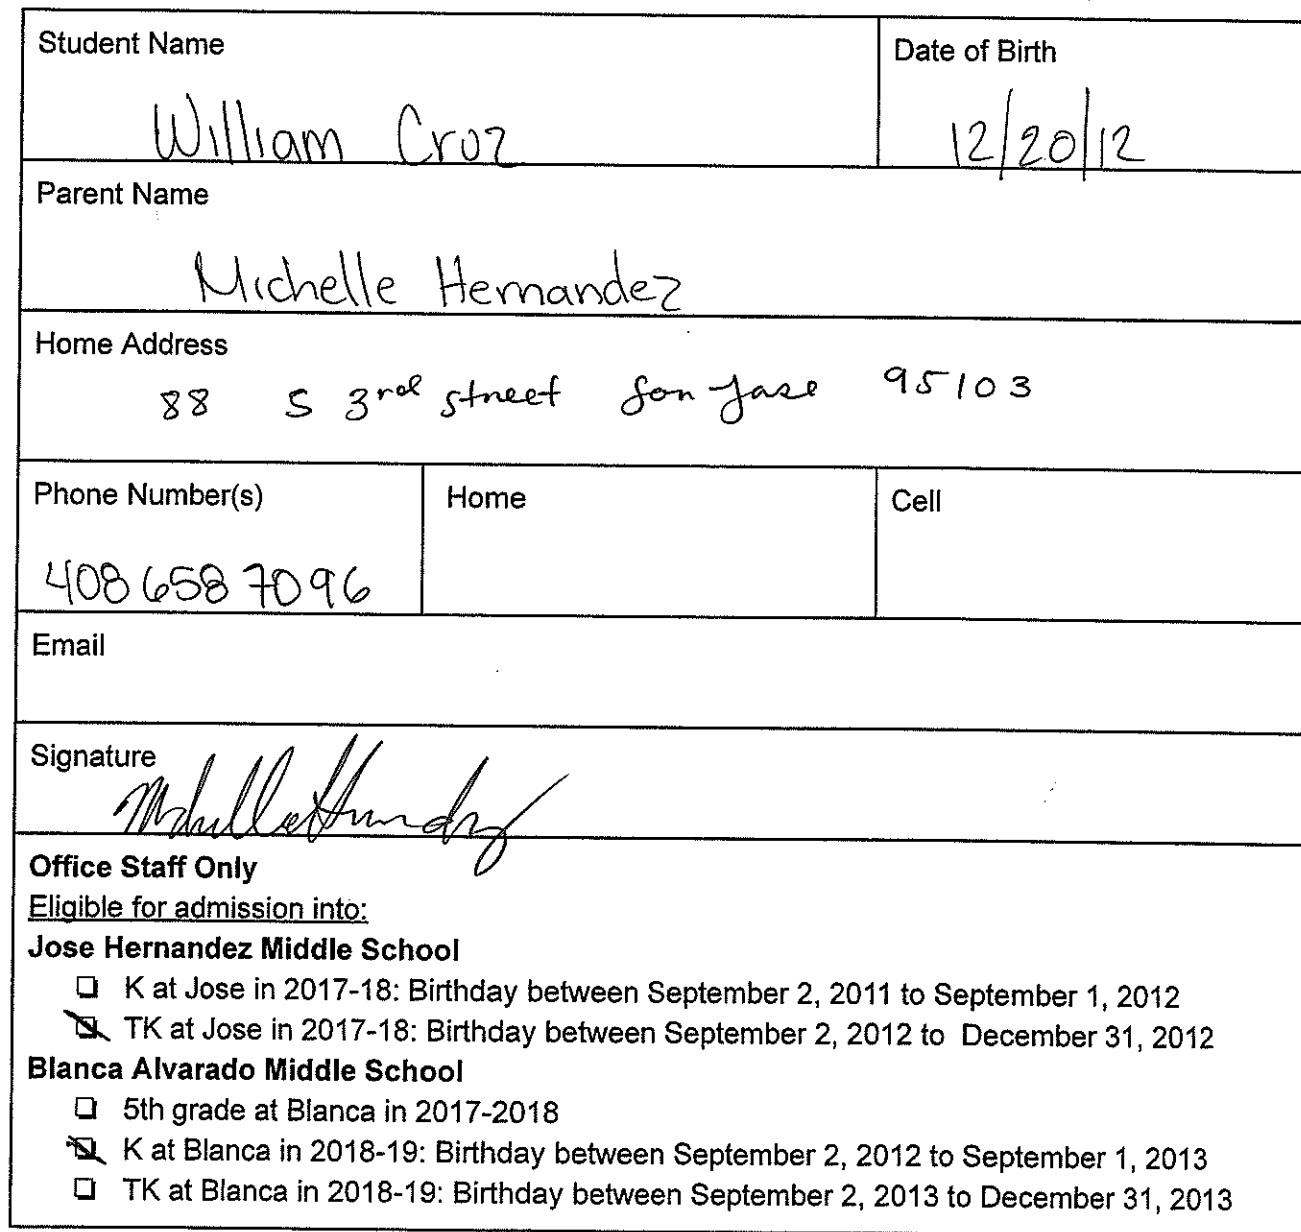 Student Name
Date of Birth
William Cruz
12/20/12
Parent Name
Michelle Hernandez
Home Address
88 S 3rd street San Jose 95103
Phone Number(s)
Home
Cell
408 658 7096
Email
Signature
Michelle Hernandez
Office Staff Only
Eligible for admission into:
Jose Hernandez Middle School
K at Jose in 2017-18: Birthday between September 2, 2011 to September 1, 2012
TK at Jose in 2017-18: Birthday between September 2, 2012 to December 31, 2012
Blanca Alvarado Middle School
5th grade at Blanca in 2017-2018
K at Blanca in 2018-19: Birthday between September 2, 2012 to September 1, 2013
TK at Blanca in 2018-19: Birthday between September 2, 2013 to December 31, 2013